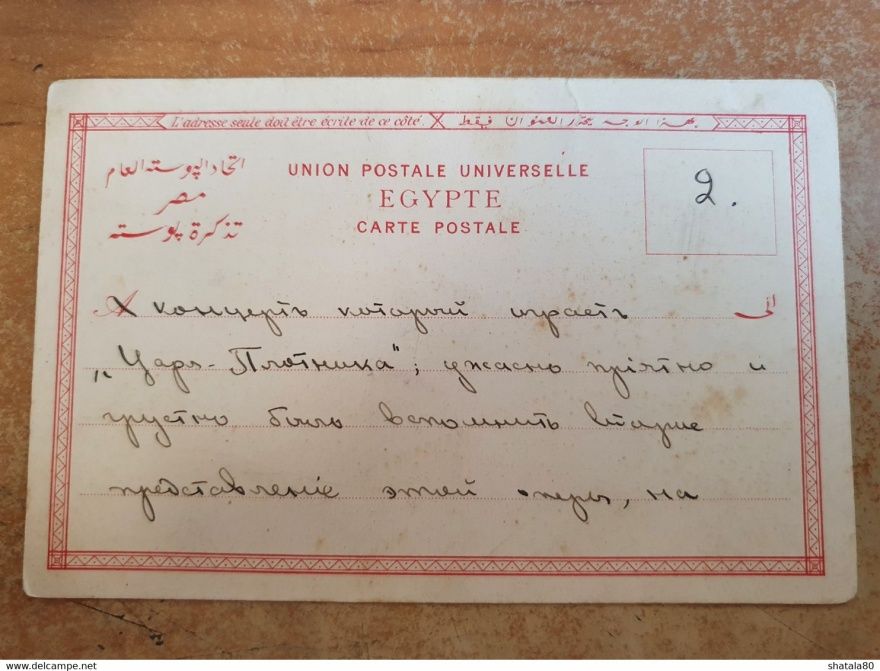 L'adresse seule doit être écrite de ce côté. بهذا الوجه يحرر العنوان فقط
اتحاد البوسته العام
مصر
تذكرة بوسته
UNION POSTALE UNIVERSELLE
EGYPTE
CARTE POSTALE
2.
A
الى
концертъ который играетъ
„Царь-Плотника"; ужасно прiятно и
грустно было вспомнить
представленiе этой оперы, на
shatala80